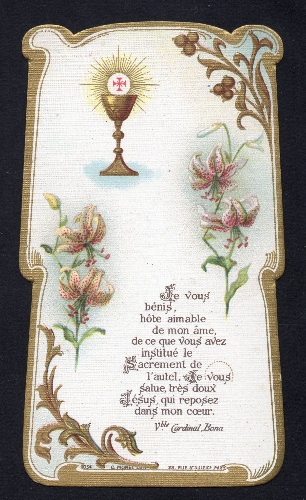 Je vous
bénis,
hôte aimable
de mon âme,
de ce que vous avez
institué le
Sacrement de
l'autel, Je vous
salue, très doux
Jésus, qui reposez
dans mon cœur.
Vble Cardinal Bona